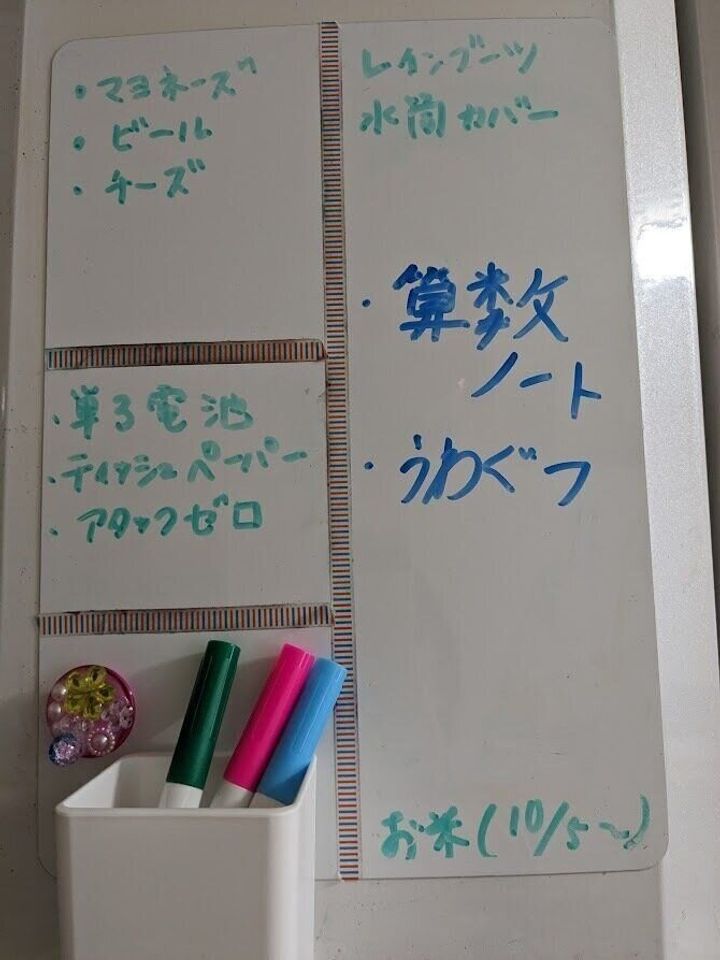 ・マヨネーズ
・ビール
・チーズ
・単3電池
・ティッシュペーパー
・アタックゼロ
レインブーツ
水筒カバー
・算数
ノート
・うわぐつ
お米(10/5～)